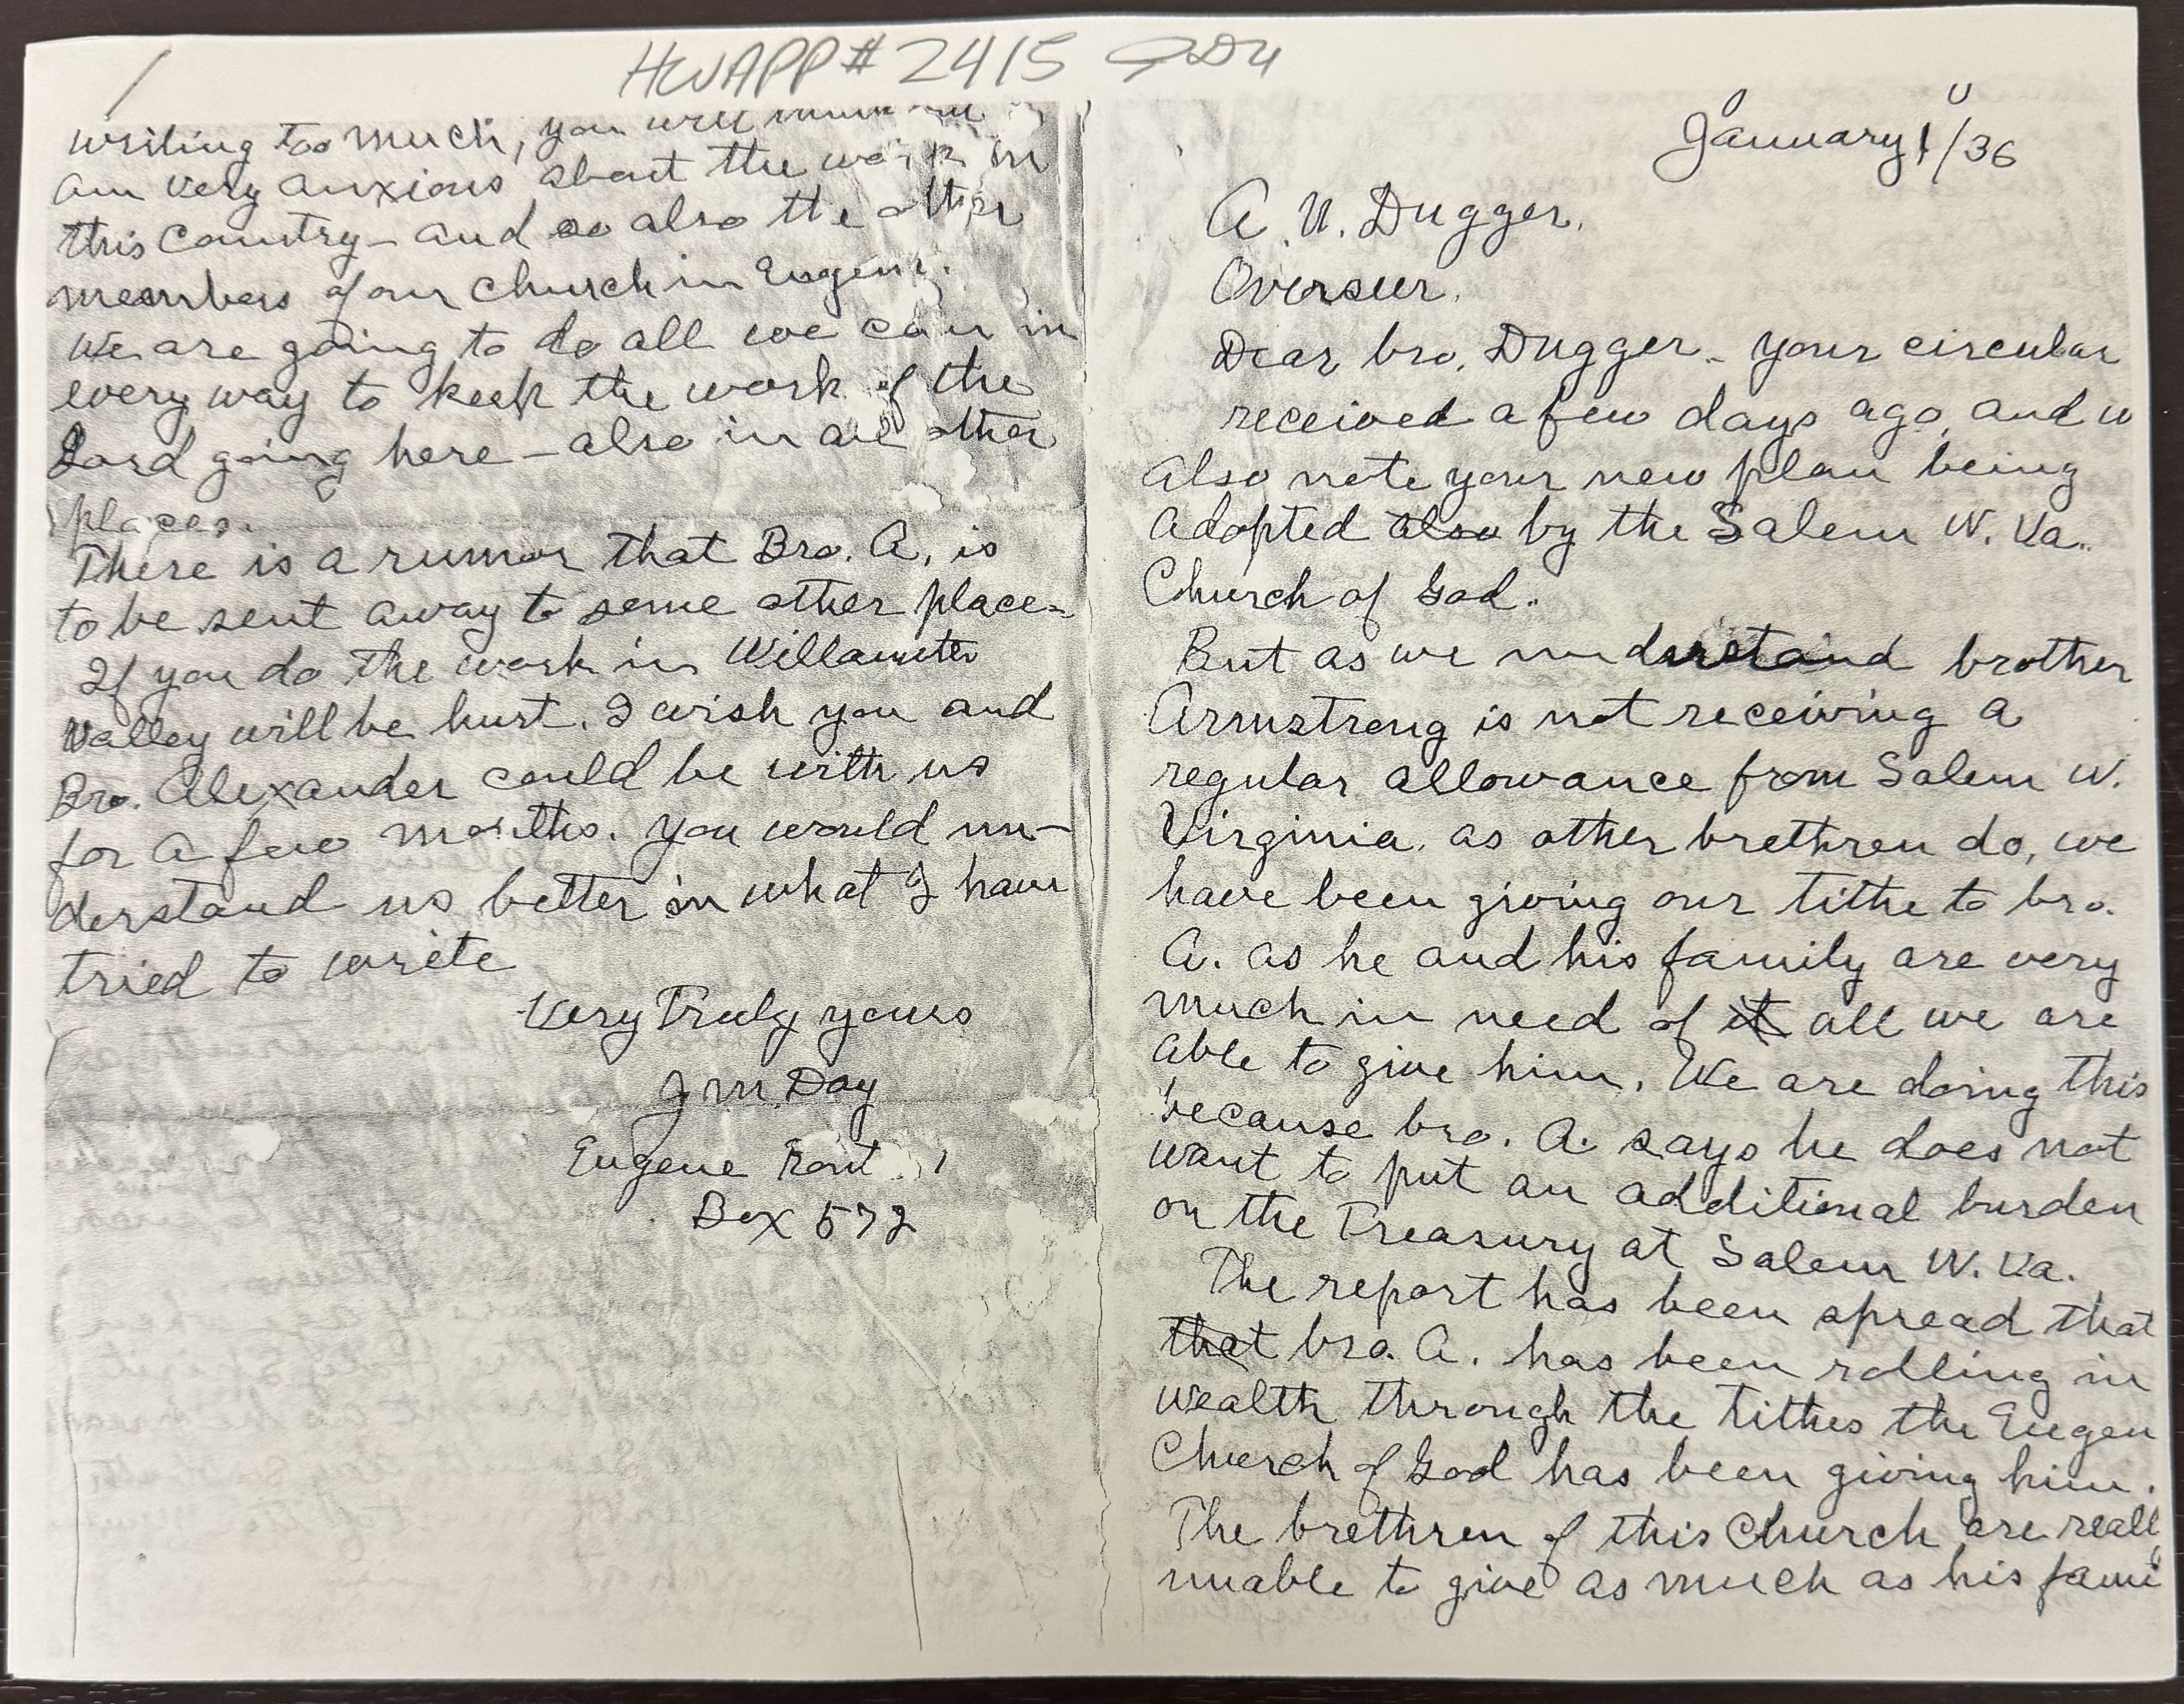 HWAPP# 2415
/
writing too much, you will
am very anxious about the work in
this Country - and so also the other
members of our church in Eugene.
We are going to do all we can in
every way to keep the work of the
Lord going here - also in all other
places.
There is a rumor that Bro. A. is
to be sent away to some other place -
If you do the work in Willamette
Valley will be hurt. I wish you and
Bro. Alexander could be with us
for a few months. You would un-
derstand us better in what I have
tried to write
Very Truly yours
J M Day
Eugene Rout 1
Box 572
January 1/36
A. N. Dugger.
Overseer.
Dear bro. Dugger - your circular
received a few days ago, and w
also note your new plan being
adopted also by the Salem W. Va..
Church of God.
But as we understand brother
Armstrong is not receiving a
regular allowance from Salem W.
Virginia. as other brethren do, we
have been giving our tithe to bro.
A. as he and his family are very
much in need of it all we are
able to give him. We are doing this
because bro. A. says he does not
want to put an additional burden
on the Treasury at Salem W. Va.
The report has been spread that
that bro. A. has been rolling in
wealth through the tithes the Eugen
Church of God has been giving him.
The brethren of this Church are reall
unable to give as much as his fami